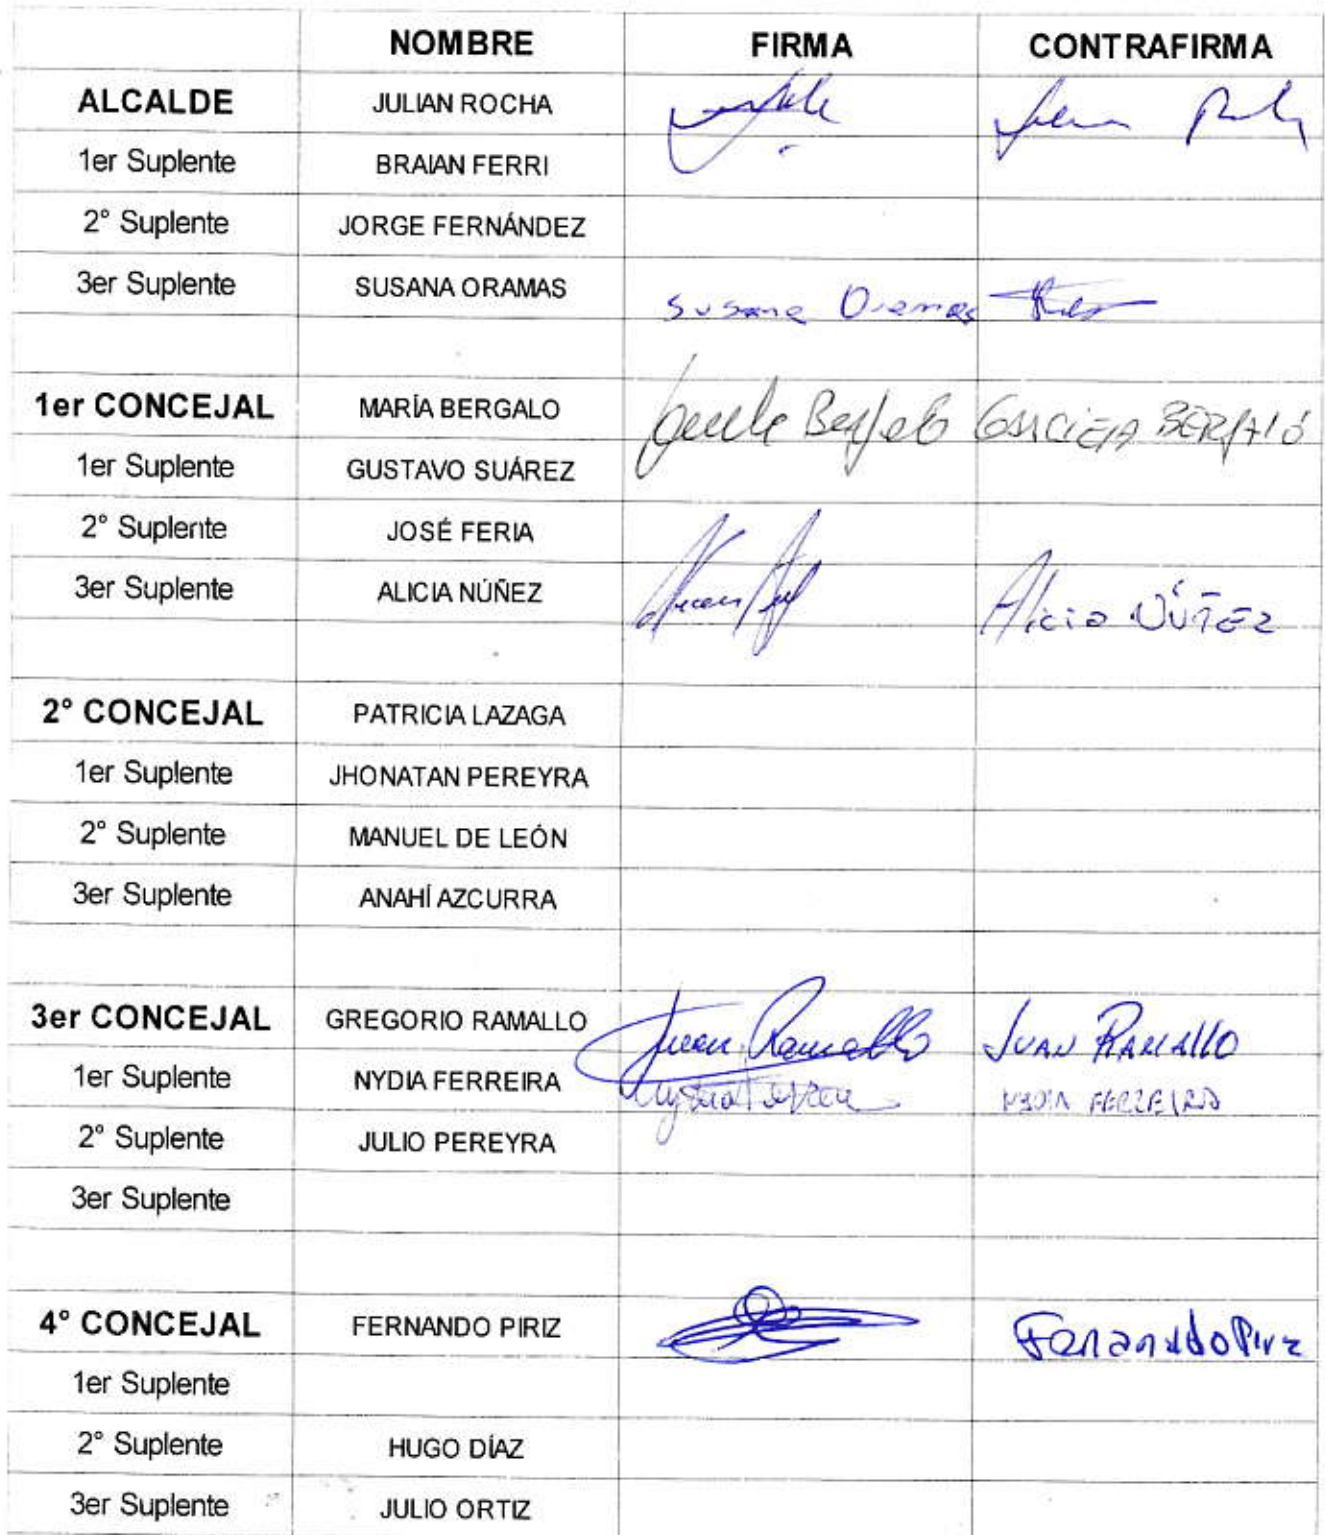 NOMBRE FIRMA CONTRAFIRMA
ALCALDE JULIAN ROCHA
1er Suplente BRAIAN FERRI
2° Suplente JORGE FERNÁNDEZ
3er Suplente SUSANA ORAMAS Susana Oramas
1er CONCEJAL MARÍA BERGALO GRACIELA BERGALÓ
1er Suplente GUSTAVO SUÁREZ
2° Suplente JOSÉ FERIA
3er Suplente ALICIA NÚÑEZ Alicia NÚÑEZ
2° CONCEJAL PATRICIA LAZAGA
1er Suplente JHONATAN PEREYRA
2° Suplente MANUEL DE LEÓN
3er Suplente ANAHÍ AZCURRA
3er CONCEJAL GREGORIO RAMALLO Juan Ramallo JUAN RAMALLO
1er Suplente NYDIA FERREIRA NYDIA FERREIRA
2° Suplente JULIO PEREYRA
3er Suplente
4° CONCEJAL FERNANDO PIRIZ Fernando Piriz
1er Suplente
2° Suplente HUGO DÍAZ
3er Suplente JULIO ORTIZ